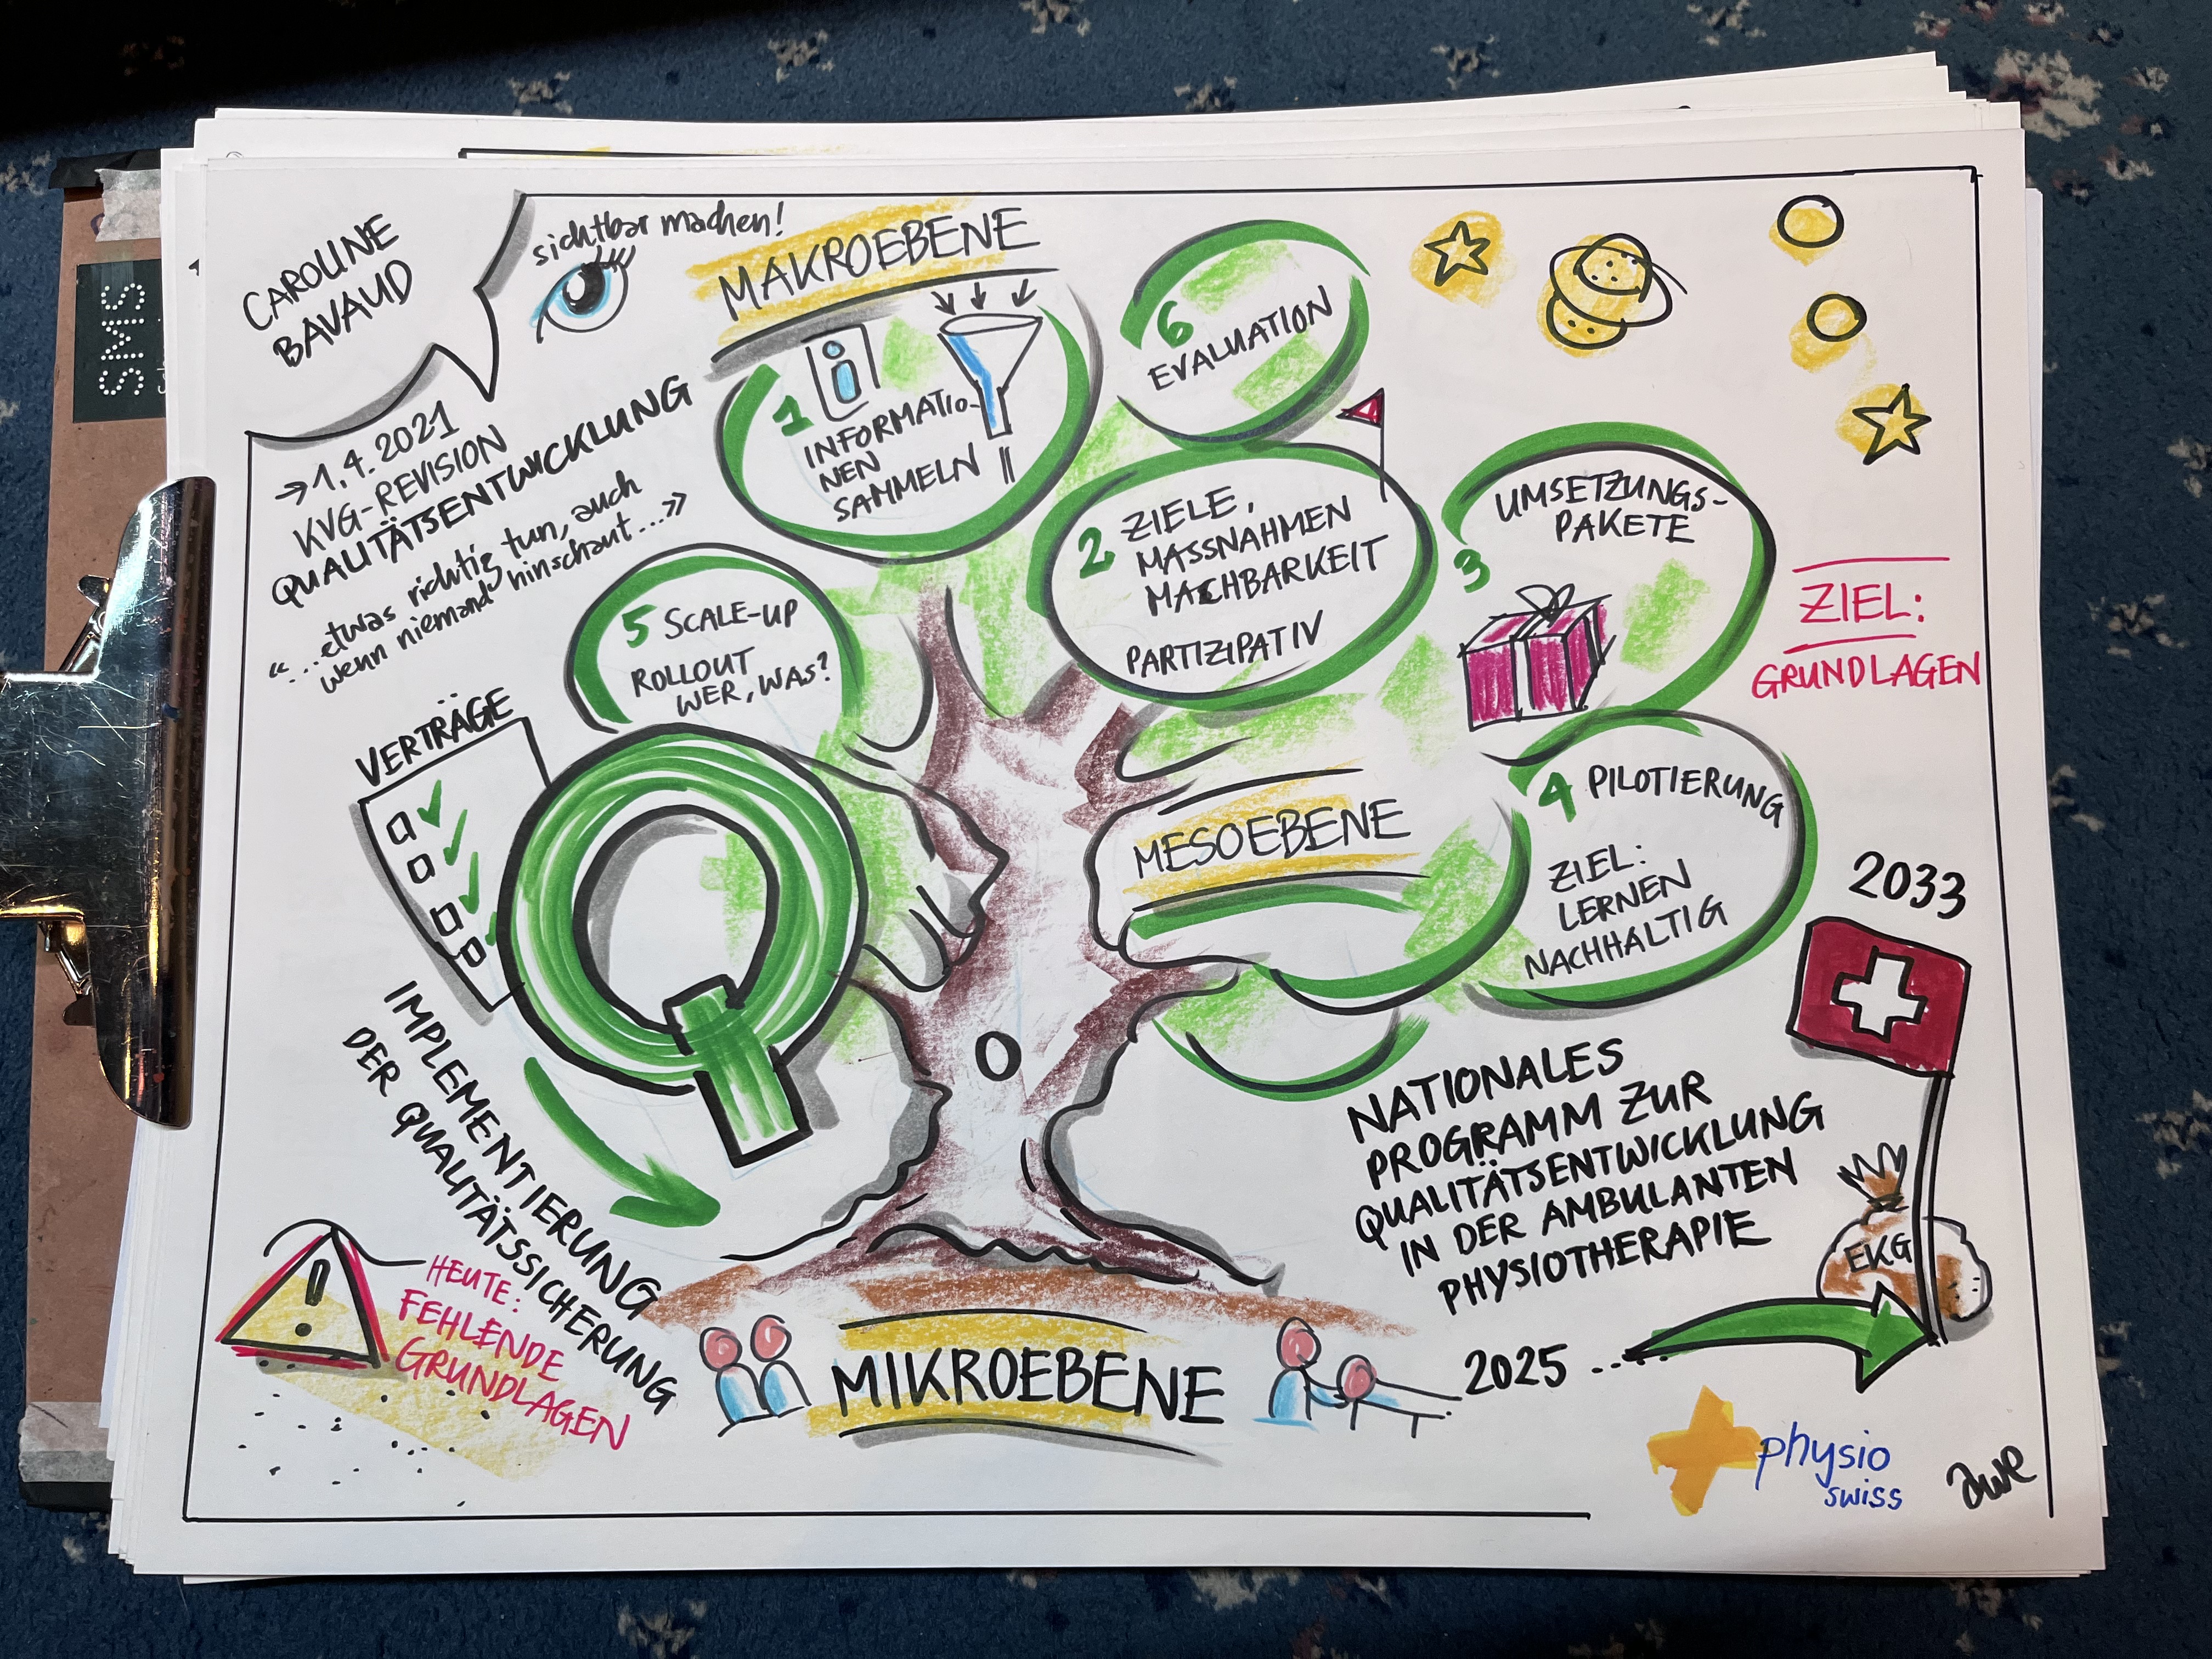 SMS
CAROLINE
BAVAUD
sichtbar machen!
→ 1.4.2021
KVG-REVISION
QUALITÄTSENTWICKLUNG
"...etwas richtig tun, auch
wenn niemand hinschaut..."
MAKROEBENE
1
i
INFORMATIO-
NEN
SAMMELN
6
EVALUATION
2 ZIELE,
MASSNAHMEN
MACHBARKEIT
PARTIZIPATIV
3
UMSETZUNGS-
PAKETE
ZIEL:
GRUNDLAGEN
5 SCALE-UP
ROLLOUT
WER, WAS?
VERTRÄGE
Q
MESOEBENE
4 PILOTIERUNG
ZIEL:
LERNEN
NACHHALTIG
IMPLEMENTIERUNG
DER QUALITÄTSSICHERUNG
2033
NATIONALES
PROGRAMM ZUR
QUALITÄTSENTWICKLUNG
IN DER AMBULANTEN
PHYSIOTHERAPIE
EKG
2025
!
HEUTE:
FEHLENDE
GRUNDLAGEN
MIKROEBENE
physio
swiss
awe